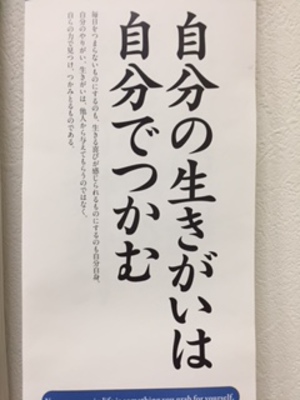 自分の生きがいは
自分でつかむ
毎日をつまらないものにするのも、生きる喜びが感じられるものにするのも自分自身。
自分のやりがい、生きがいは、他人から与えてもらうのではなく、
自らの力で見つけ、つかみとるものである。
life is something you grab for yourself.